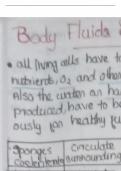 Body Fluids
• all living cells have to
nutrients, O₂ and other
Also the water an ha
produced, have to b
ously for healthy fu
Sponges circulate
Coelenterates surrounding